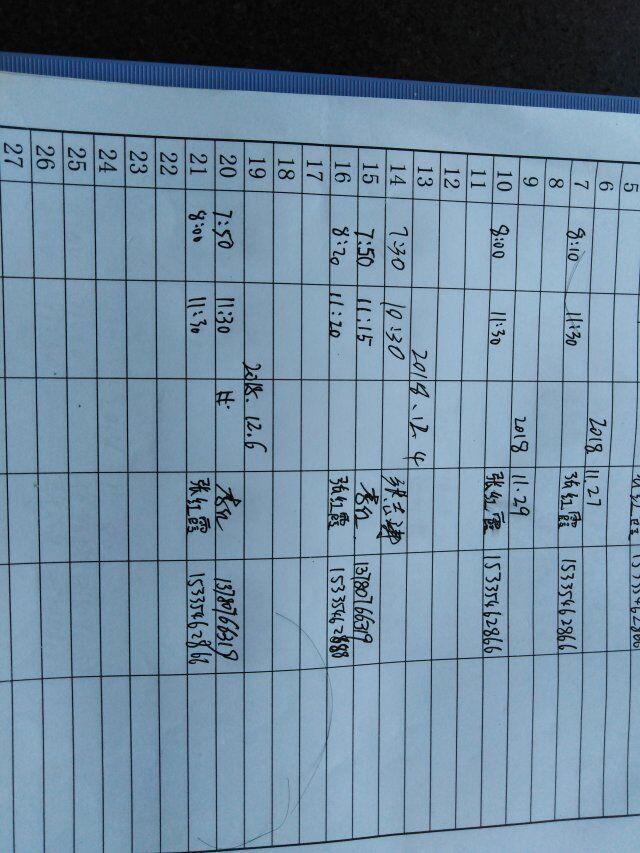 5 张红霞 15335462866
6 2018 11.27
7 8:10 11:30 张红霞 15335462866
8
9 2018 11.29
10 8:00 11:30 张红霞 15335462866
11
12
13 2018.12.4
14 7:30 10:30
15 7:50 11:15 13780766519
16 8:20 11:20 张红霞 15335462888
17
18
19 2018.12.6
20 7:50 11:30 13780766519
21 8:00 11:30 张红霞 15335462866
22
23
24
25
26
27